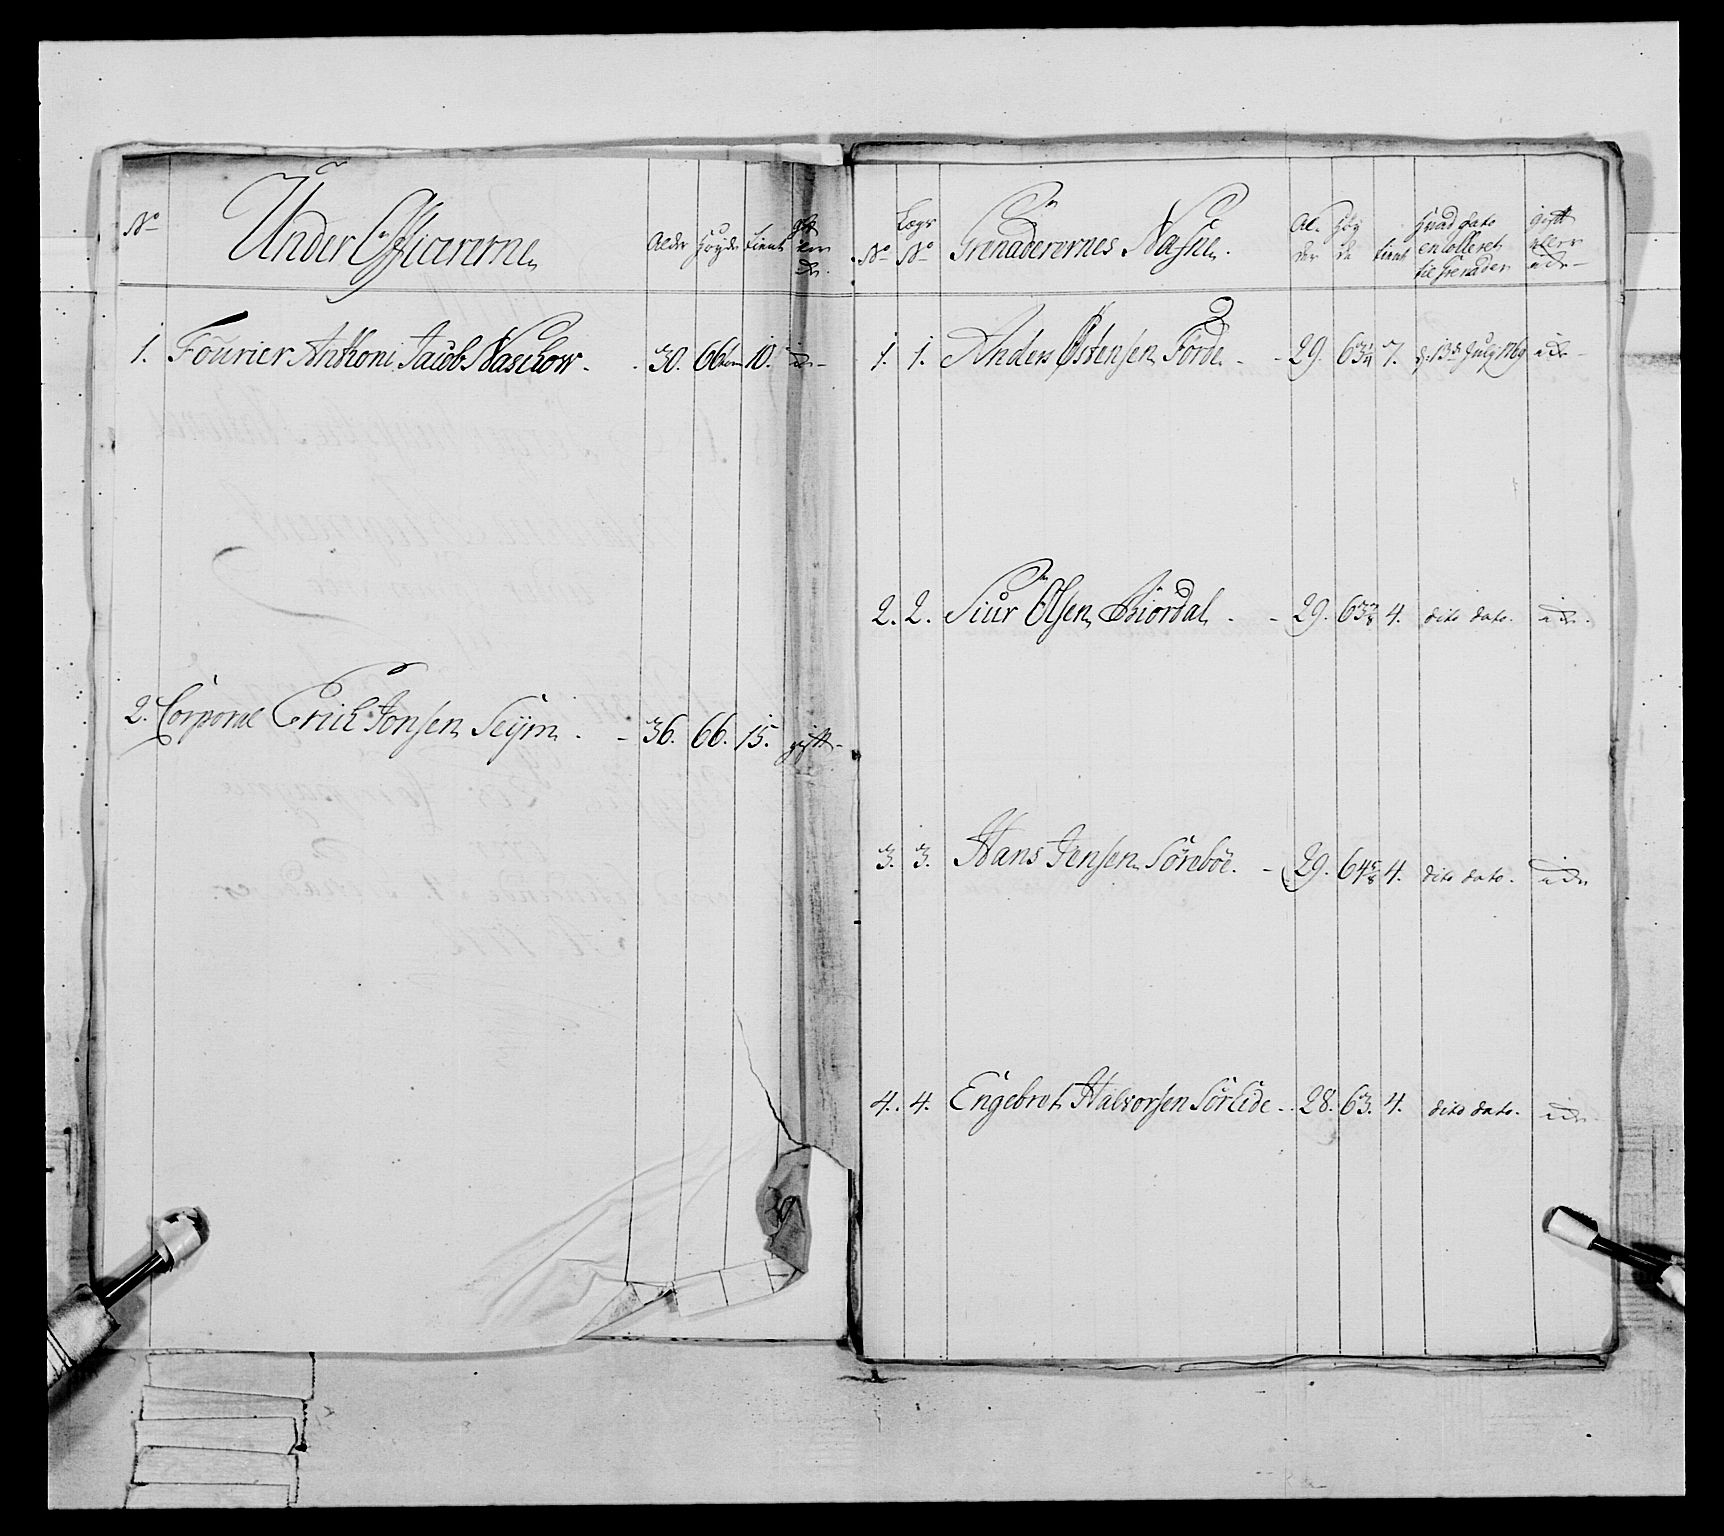 No
Under Officererne
Alder
Høyde
tient
gift
eller
ei
1. Fourier Anthoni Jacob Waschow. 30. 66 10.
2. Corporal Erich Jonsen Seÿm. 36. 66. 15. gift
No
Lægs
No
Grenaderernes Nafne.
Al-
der
Høy
de
tient
Hvad dato
enrolleret
til Grenader
gift
eller
ei
1. 1. Anders Østensen Førde. 29. 63 3/4 7. d. 13de Julÿ 1769
2. 2. Siur Olsen Biordal. 29. 63 4. dito dato.
3. 3. Hans Jensen Sørebøe. 29. 64 5/8 4. dito dato.
4. 4. Engebret Halvorsen Sørlide 28. 63. 4. dito dato.